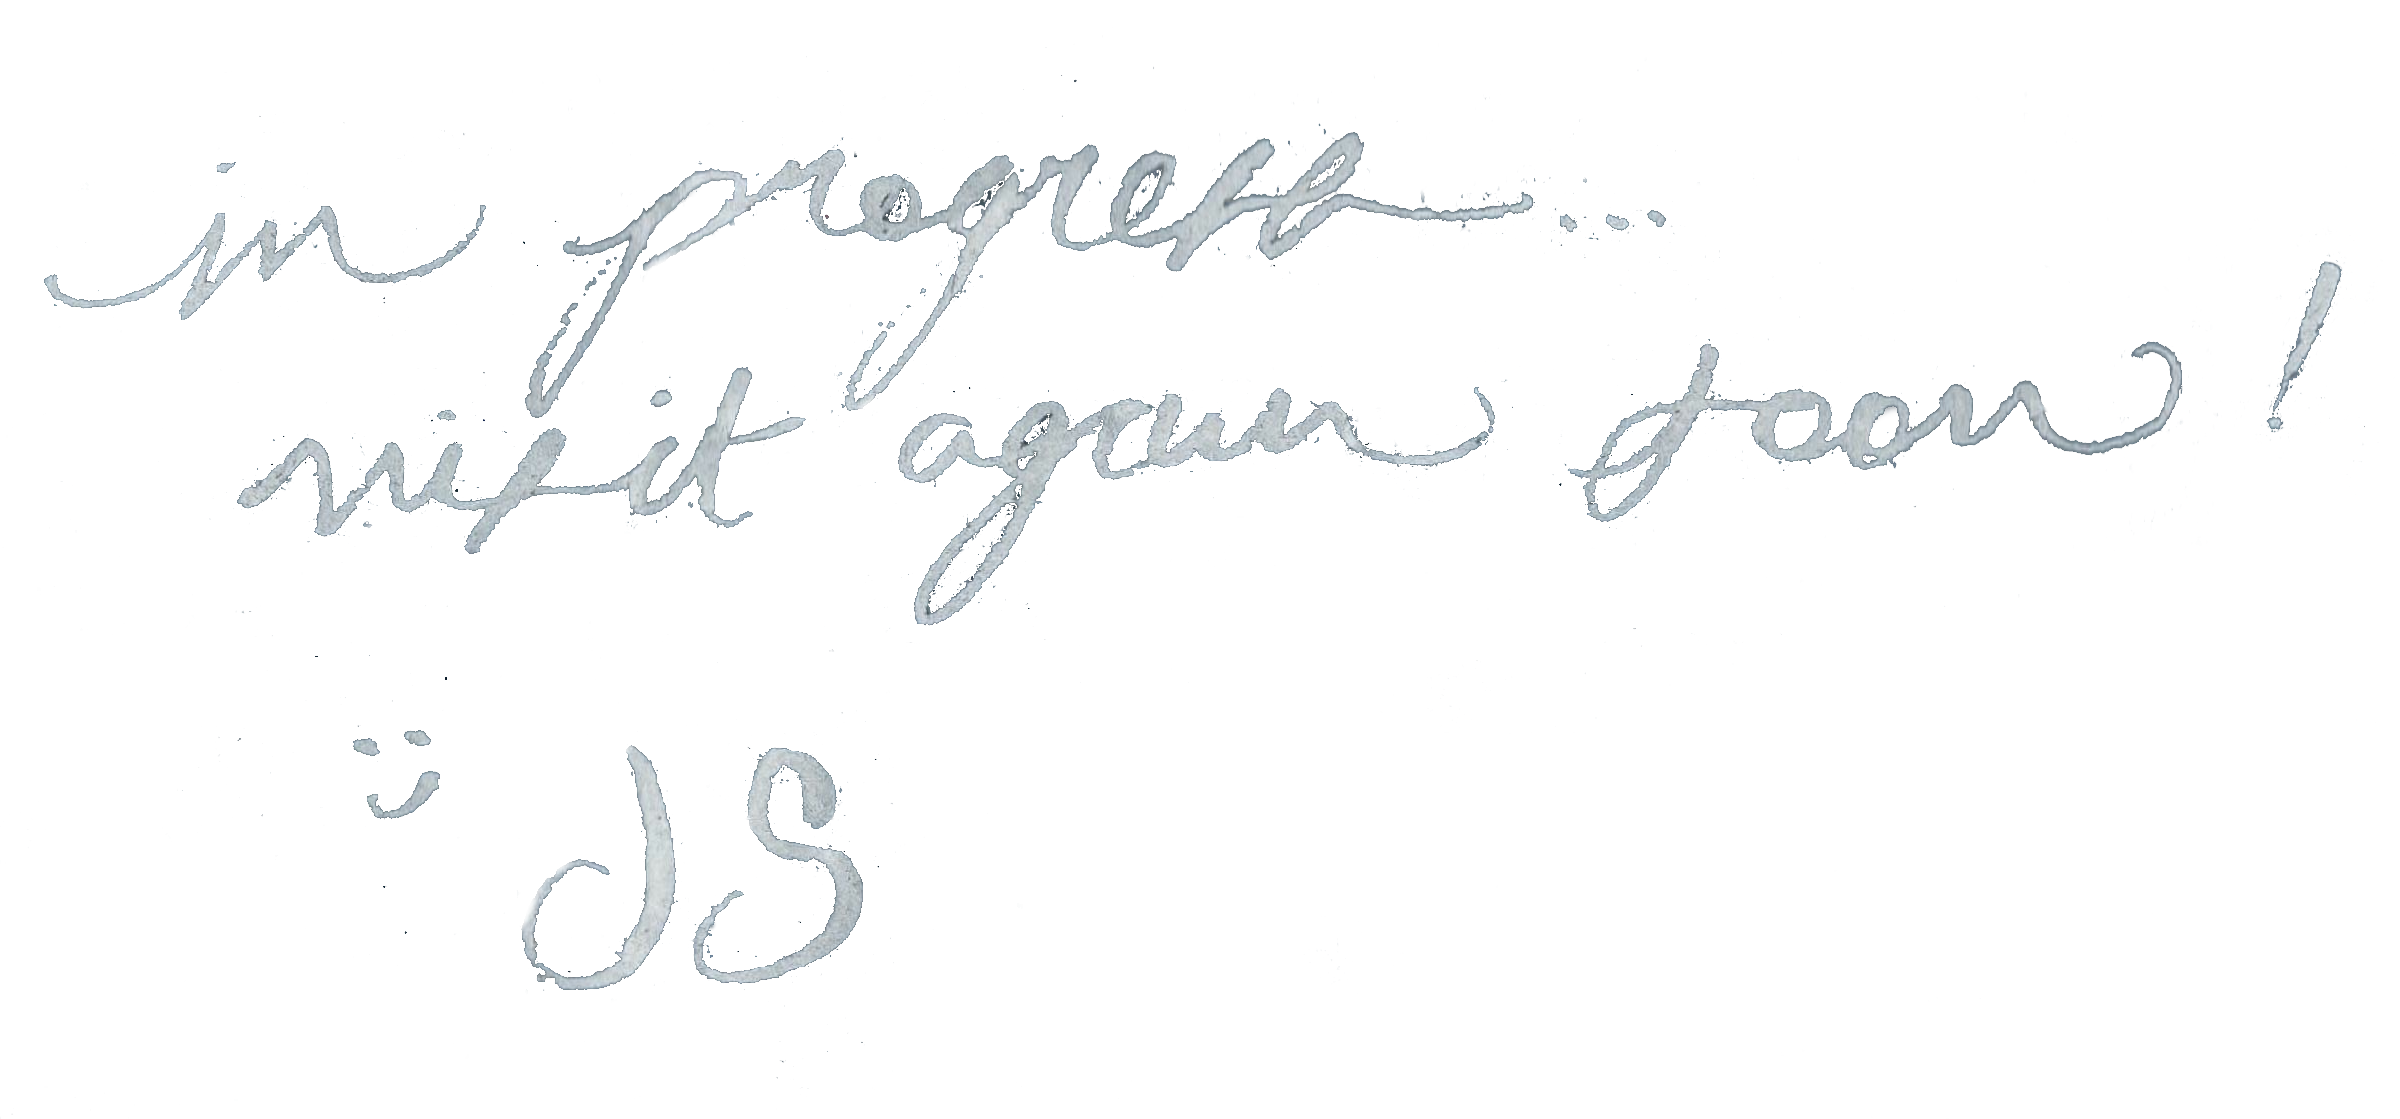 in progress...
visit again soon!
:) JS